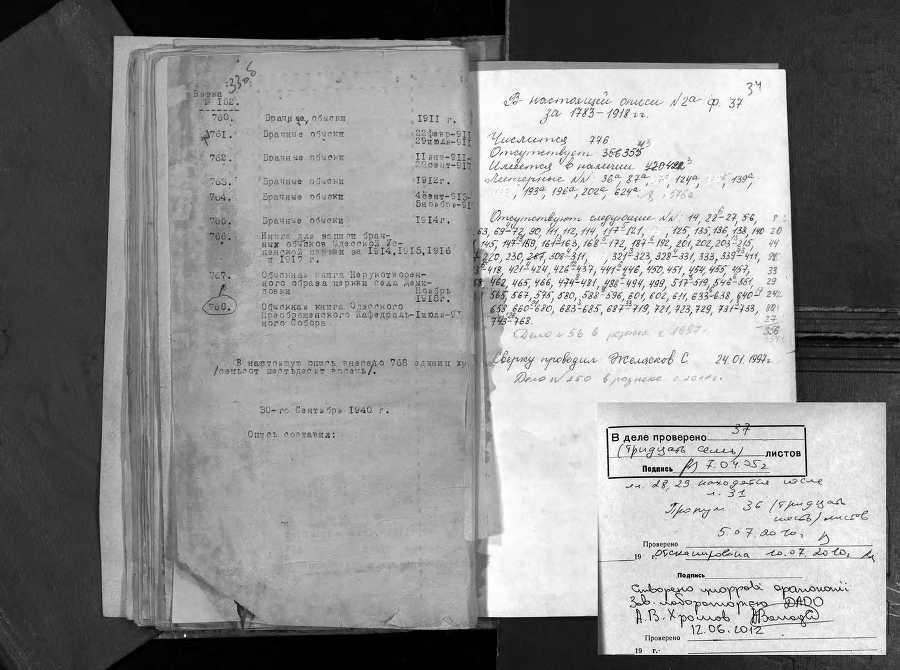 330б
Вятка
№ 162.
760. Врачные обыски 1911 г.
761. Врачные обыски 22февр-911
29июль-911
762. Врачные обыски 11янв-911-
763. Врачные обыски 1912г.
764. Врачные обыски
765. Врачные обыски 1914г.
766. Книга для записи брач-
ных обысков Одесской Ус-
пенской церкви за 1914,1915,1916
и 1917 г.
767. Обыскная книга Нерукотворен-
ного образа церкви села
Ноябрь
1918г.
768. Обыскная книга Одесского
Преображенского Кафедраль-
ного Собора
В настоящую опись внесено 768 единиц
/семьсот шестьдесят восемь/.
30-го Сентябрь 1940 г.
Опись составил:
34
В настоящей описи N2а ф. 37
за 1783-1918 гг.
Числится 776
Отсутствует
Имеется в наличии
Литерные NN: 36а, 87а, 124а, 139а,
193а, 196а, 202а, 624а
Отсутствуют следующие NN: 14, 22-27, 56, 8
63, 69-72, 90, 111, 112, 114, 117-121, 125, 135, 136, 138, 140 20
145, 147-159, 161-163, 168-172, 187-192, 201, 202, 203-215, 44
220, 230, 267, 308-311, 321-323, 328-331, 333, 339-411,
418, 421-424, 426-437, 441-446, 450, 451, 454, 455, 457, 33
462, 465, 466, 474-481, 488-494, 499, 517-519, 546-551, 29
565, 567, 575, 580, 588-596, 601, 602, 611, 633-638, 640-
658, 660-680, 683-685, 687-719, 721, 723, 729, 731-733, 80
743-768. 27
356
Дело N 56 в розыске с 1997.
Сверку проводил Желясков С. 24.01.1997г.
Дело N 250 в розыске с
В деле проверено 37
(тридцать семь) листов
Подпись 7.04.95г
лл. 28, 29 находятся после
л. 31
Пронум 36 (тридцать
шесть) листов
5.07.2010г.
Проверено
19 г. Отсканирована 10.07.2010г.
Подпись
Створено цифрові фотокопії
Зав. лабораторією ДАОО
А.В. Хромов
12.06.2012
Проверено
19 г.